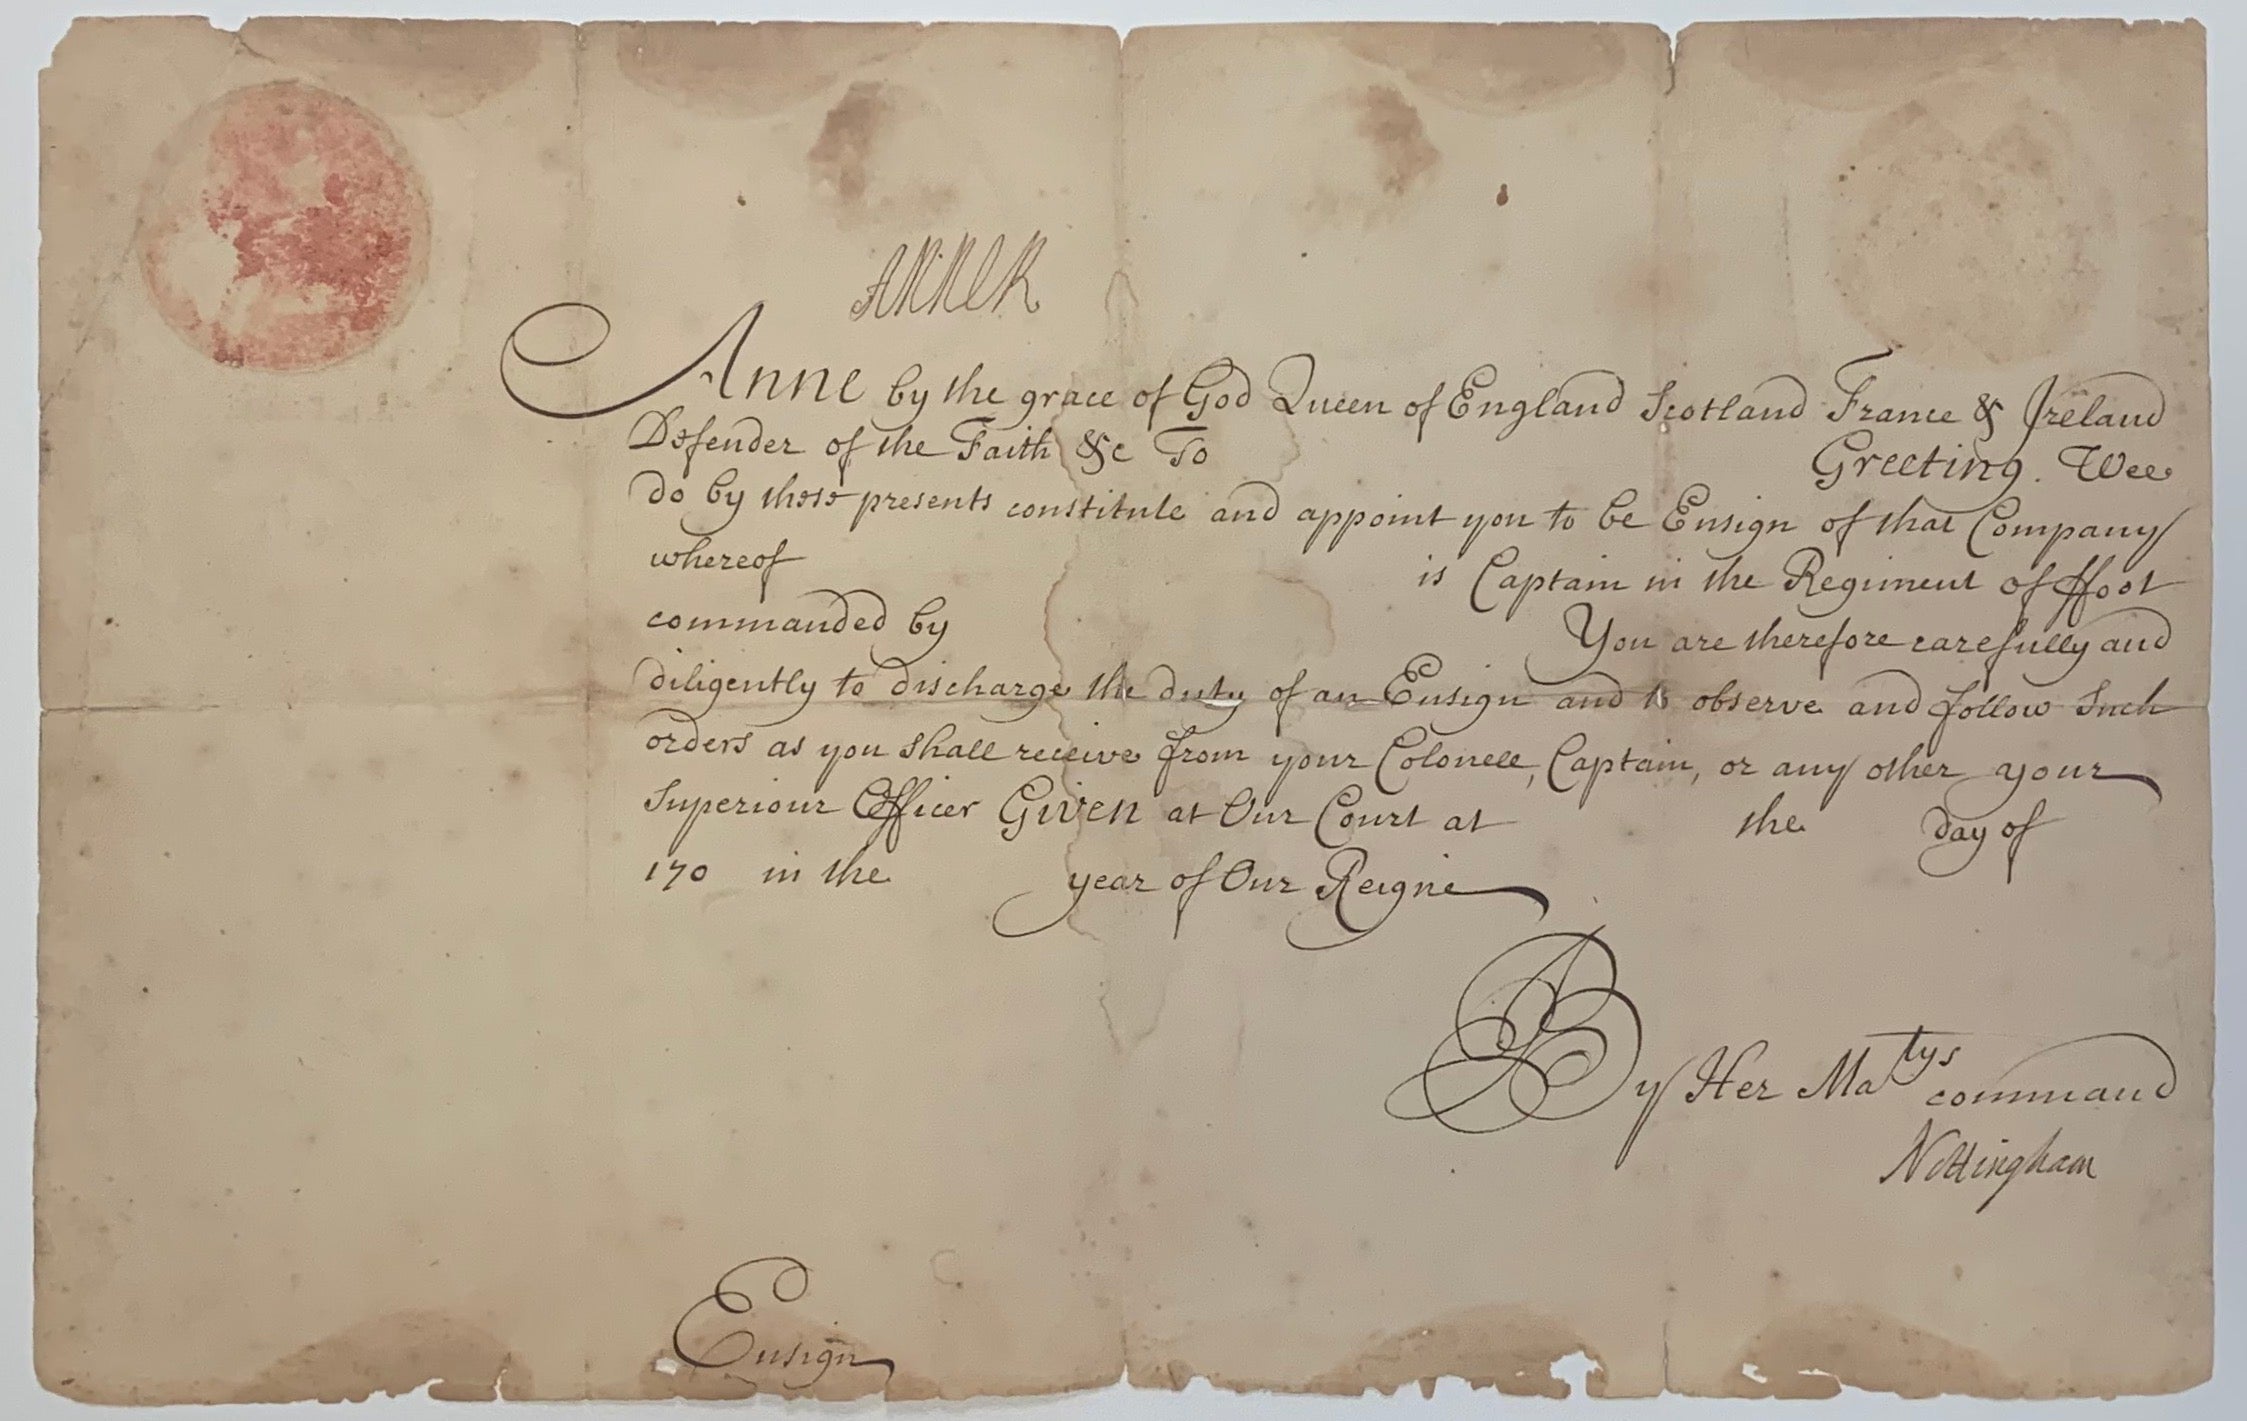 Anne R
Anne by the grace of God Queen of England Scotland France & Ireland
Defender of the Faith &c To Greeting. Wee
do by these presents constitute and appoint you to be Ensign of that Company
whereof is Captain in the Regiment of ffoot
commanded by You are therefore carefully and
diligently to discharge the duty of an Ensign and to observe and follow Such
orders as you shall receive from your Colonell, Captain, or any other your
Superiour Officer Given at Our Court at the day of
170 in the year of Our Reigne
By Her Ma^tys command
Nottingham
Ensign